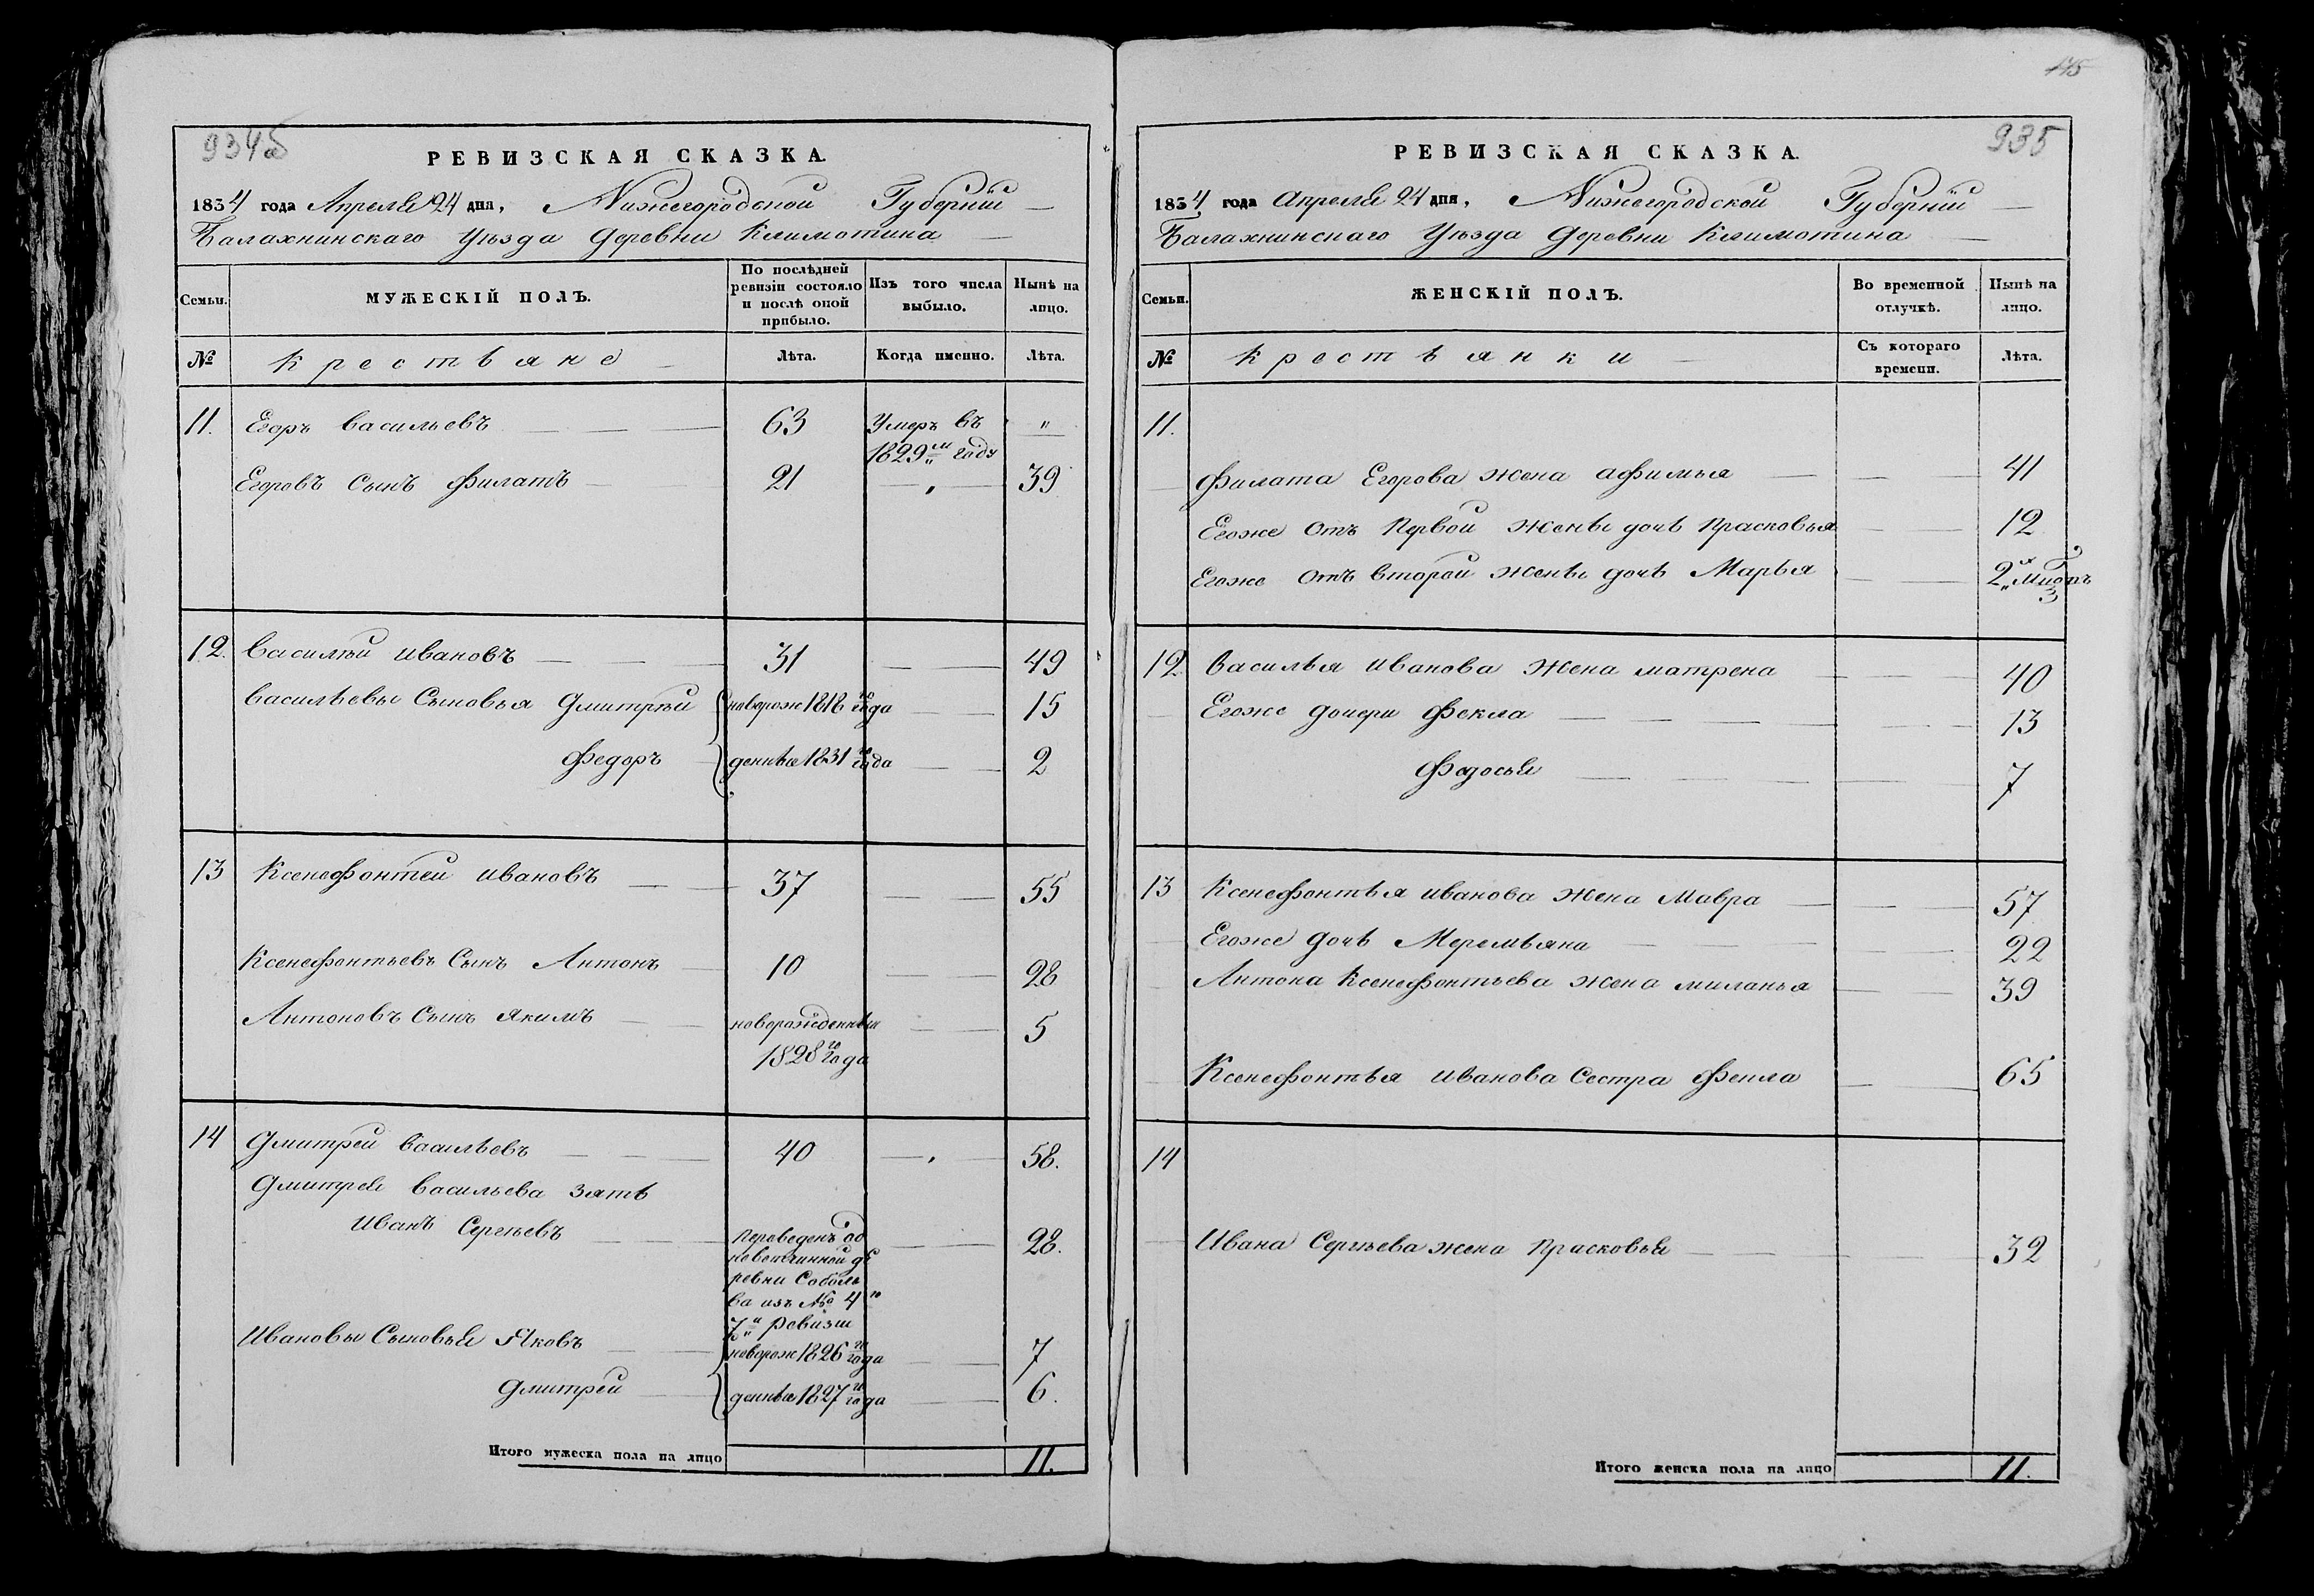 934б
РЕВИЗСКАЯ СКАЗКА.
1834 года Апреля 24 дня, Нижегородской Губернии
Балахнинскаго Уѣзда деревни Климотина
Семьи.
МУЖЕСКІЙ ПОЛЪ.
По послѣдней
ревизіи состояло
и послѣ оной
прибыло.
Изъ того числа
выбыло.
Нынѣ на
лицо.
№
Крестьяне
Лѣта.
Когда именно.
Лѣта.
11. Егоръ Васильевъ 63 Умеръ въ "
1829м году
Егоровъ Сынъ Филатъ 21 39
12. Василѣй Ивановъ 31 49
Васильевы Сыновья Дмитрѣй новорож 1818го года 15
Федоръ денные 1831го года 2
13 Ксенефонтей Ивановъ 37 55
Ксенефонтьевъ Сынъ Антонъ 10 28
Антоновъ Сынъ Якимъ новорожденный 5
1828го года
14 Дмитрей Васильевъ 40 58.
Дмитрея Васильева Зять
Иванъ Сергѣевъ Переведенъ од 28.
новотчинной де
ревни Соболе
ва изъ № 4го
7й Ревизіи
Ивановы Сыновья Яковъ новорож 1826го года 7
Дмитрей денные 1827го года 6.
Итого мужеска пола на лицо 11.
175
935
РЕВИЗСКАЯ СКАЗКА.
1834 года Апреля 24 дня, Нижегородской Губернии
Балахнинскаго Уѣзда деревни Климотина
Семьи.
ЖЕНСКІЙ ПОЛЪ.
Во временной
отлучкѣ.
Нынѣ на
лицо.
№
Крестьянки
Съ котораго
времени.
Лѣта.
11.
Филата Егорова жена Афимья 41
Егоже Отъ Первой жены дочь Прасковья 12
Егоже Отъ Второй жены дочь Марья 2
12 Василья Иванова жена Матрена 40
Егоже дочери Фекла 13
Федосья 7
13 Ксенефонтья Иванова жена Мавра 57
Егоже дочь Меремьяна 22
Антона Ксенефонтьева жена Миланья 39
Ксенефонтья Иванова Сестра Фекла 65
14
Ивана Сергѣева жена Прасковья 32
Итого женска пола на лицо 11.